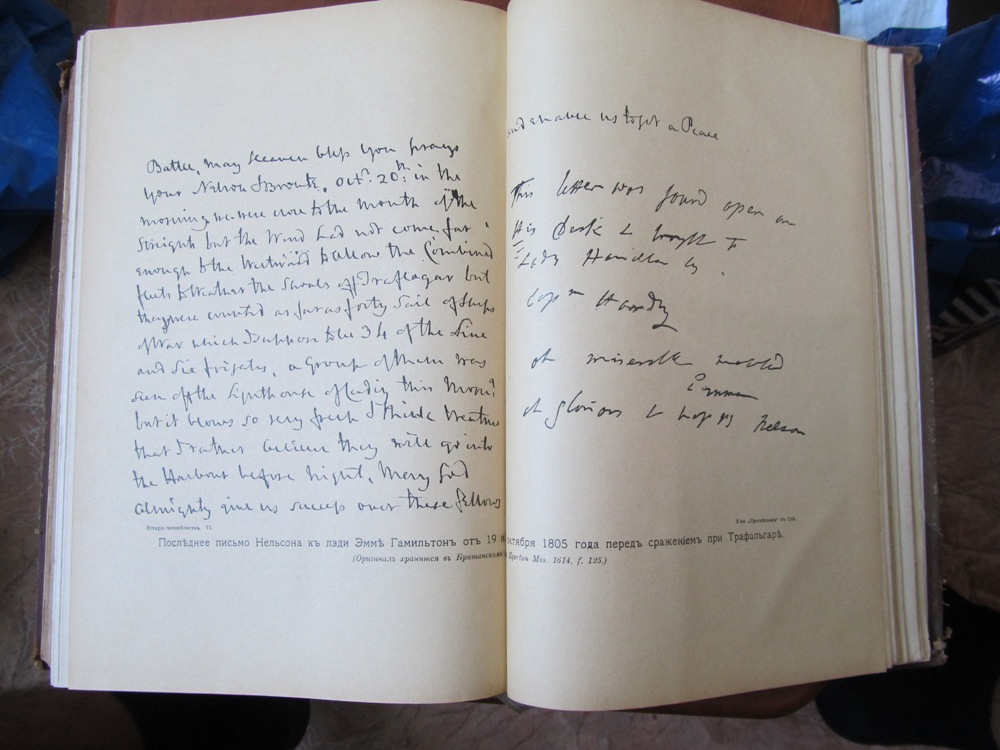 Battle, may Heaven bless you prays
your Nelson & Bronte, Octr. 20th: in the
morning we were close to the mouth of the
Streights but the Wind had not come far
enough to the Westward to allow the Combined
fleets to Weather the Shoals off Traflagar but
they were counted as far as forty Sail of Ships
of War which I suppose to be 34 of the Line
and Six frigates, a Group of them was
seen off the Lighthouse of Cadiz this Morng
but it blows so very fresh I think Weather
that I rather believe they will go into
the Harbour before night, May God
Almighty give us success over these fellows
Исторія человѣчества. VI.
and enable us to get a Peace
This letter was found open on
His Desk & brought to
Lady Hamilton by
Capn Hardy
oh miserable wretched
Emma
oh glorious & happy Nelson
Т-во „Просвѣщеніе“ въ Спб.
Послѣднее письмо Нельсона къ лэди Эммѣ Гамильтонъ отъ 19 октября 1805 года передъ сраженіемъ при Трафальгарѣ.
(Оригиналъ хранится въ Британскомъ Egerton Mss. 1614, f. 125.)